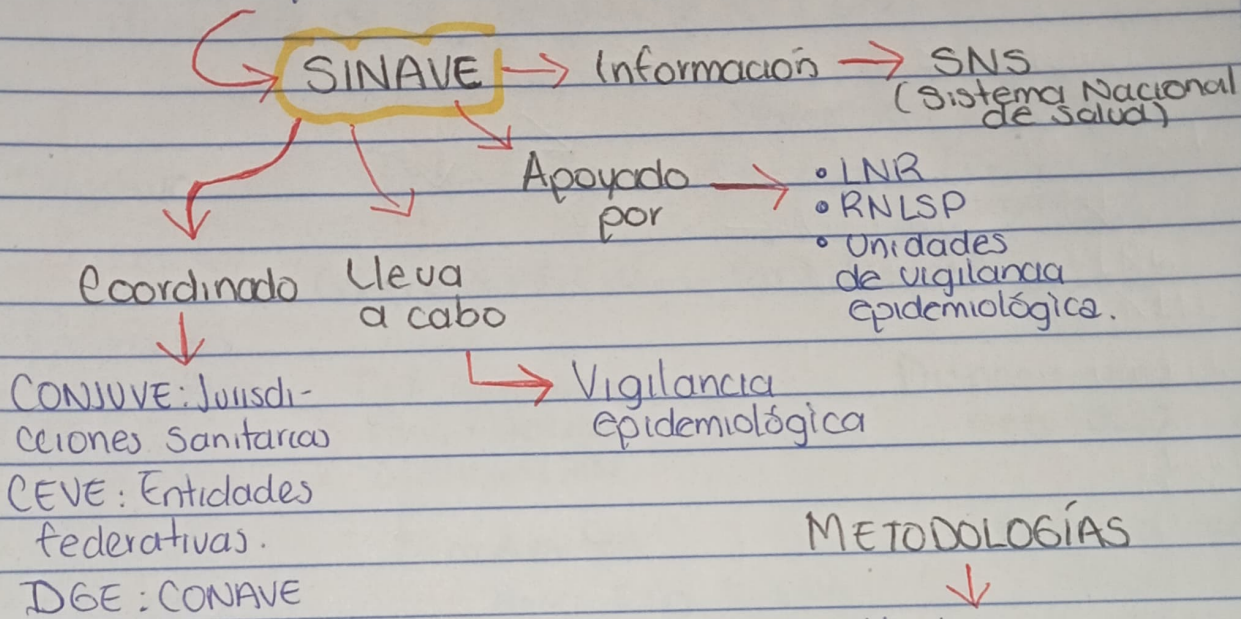 SINAVE → Información → SNS
(Sistema Nacional
de Salud)
Apoyado
por
• LNR
• RNLSP
• Unidades
de vigilancia
epidemiológica.
Coordinado
Lleva
a cabo
Vigilancia
epidemiológica
CONJUVE: Jurisdi-
cciones sanitarias
CEVE: Entidades
federativas.
DGE: CONAVE
METODOLOGÍAS